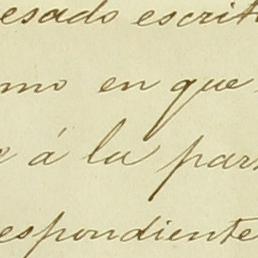 esado escrit
mo en que
á la par
espondiente